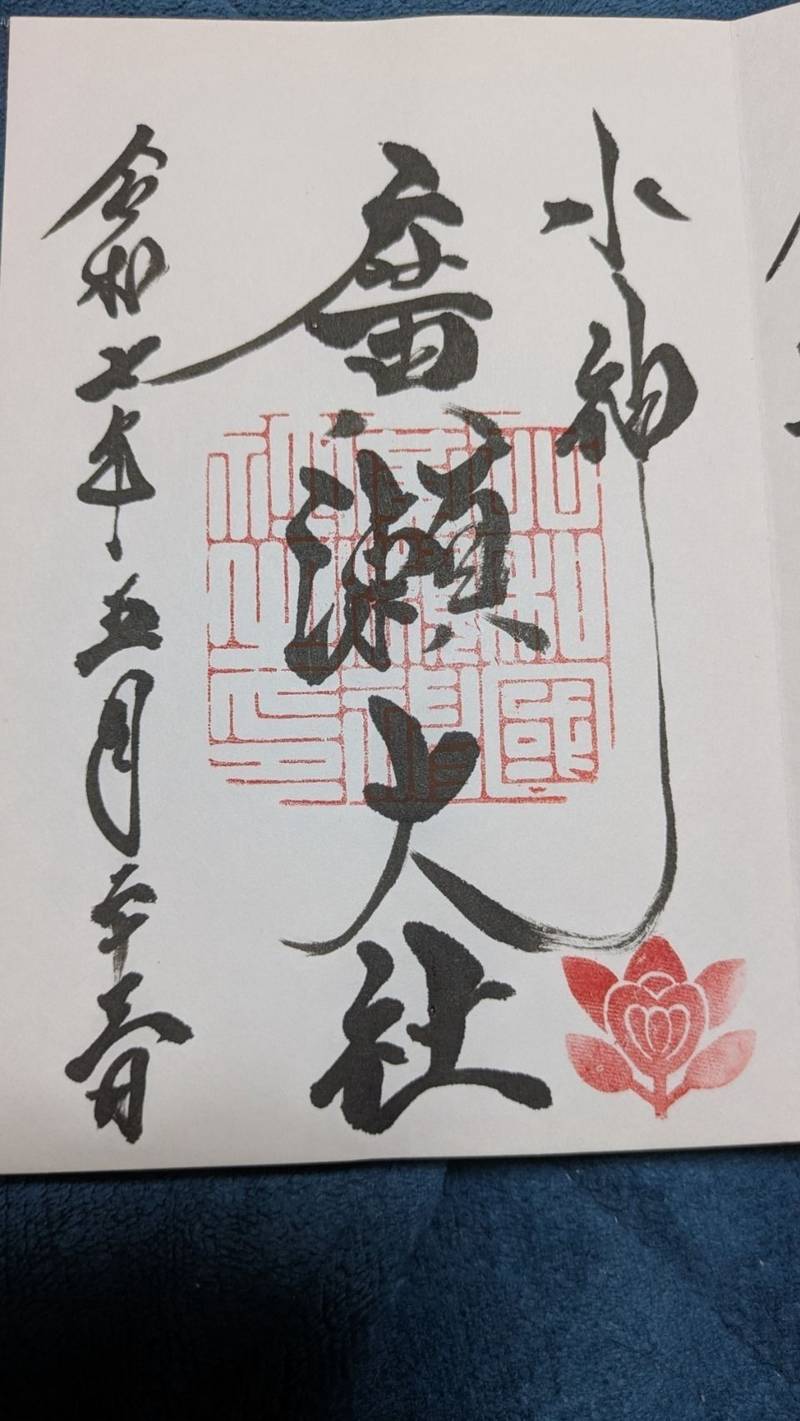 水神
廣瀬大社
令和七年五月二十六日